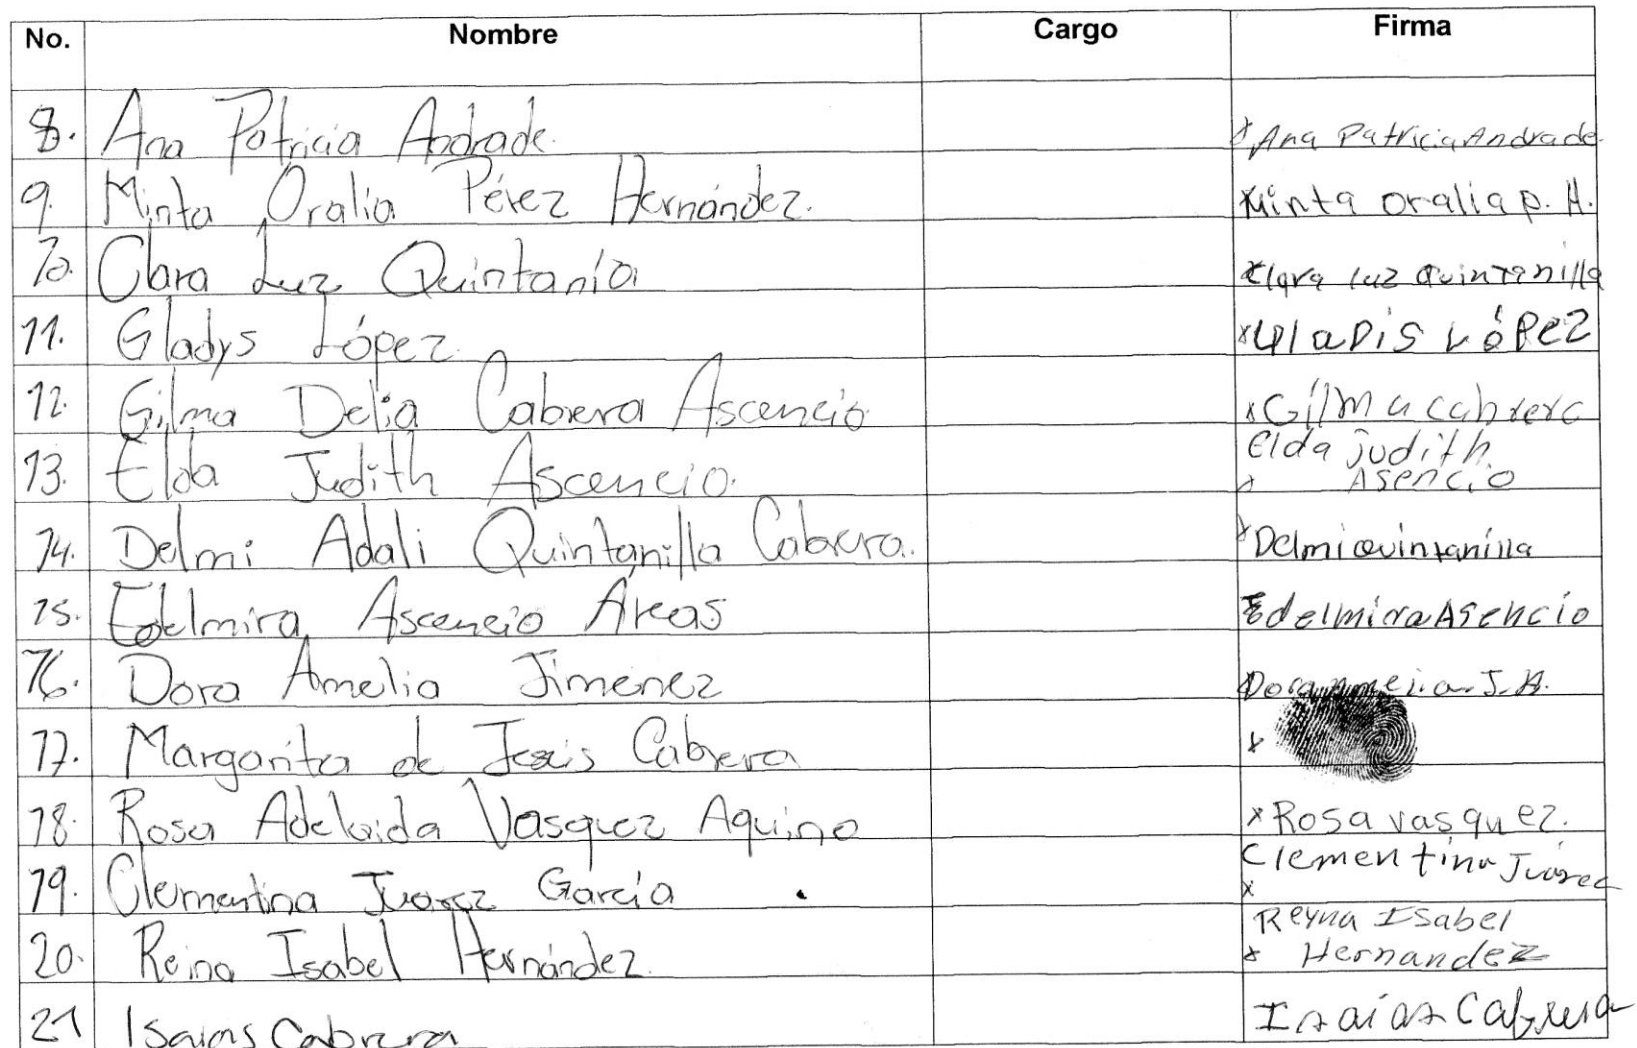 No. Nombre Cargo Firma
8. Ana Patricia Andrade. x Ana Patricia Andrade.
9. Minta Oralia Pérez Hernández. x Minta Oralia P. H.
10. Clara Luz Quintanía x Clara Luz Quintanilla
11. Gladys López x Gladis López
12. Gilma Delia Cabrera Ascencio x Gilma Cabrera
13. Elda Judith Ascencio. Elda Judith
x Asencio
14. Delmi Adali Quintanilla Cabrera. x Delmi Quintanilla
15. Edelmira Ascencio Areas Edelmira Asencio
16. Dora Amelia Jimenez Dora Amelia J. A.
17. Margarita de Jesús Cabrera x
18. Rosa Adelaida Vasquez Aquino x Rosa Vasquez.
19. Clementina Juarez García Clementina Juárez
x
20. Reina Isabel Hernández. Reyna Isabel
x Hernandez
21 Isaias Cabrera Isaías Cabrera